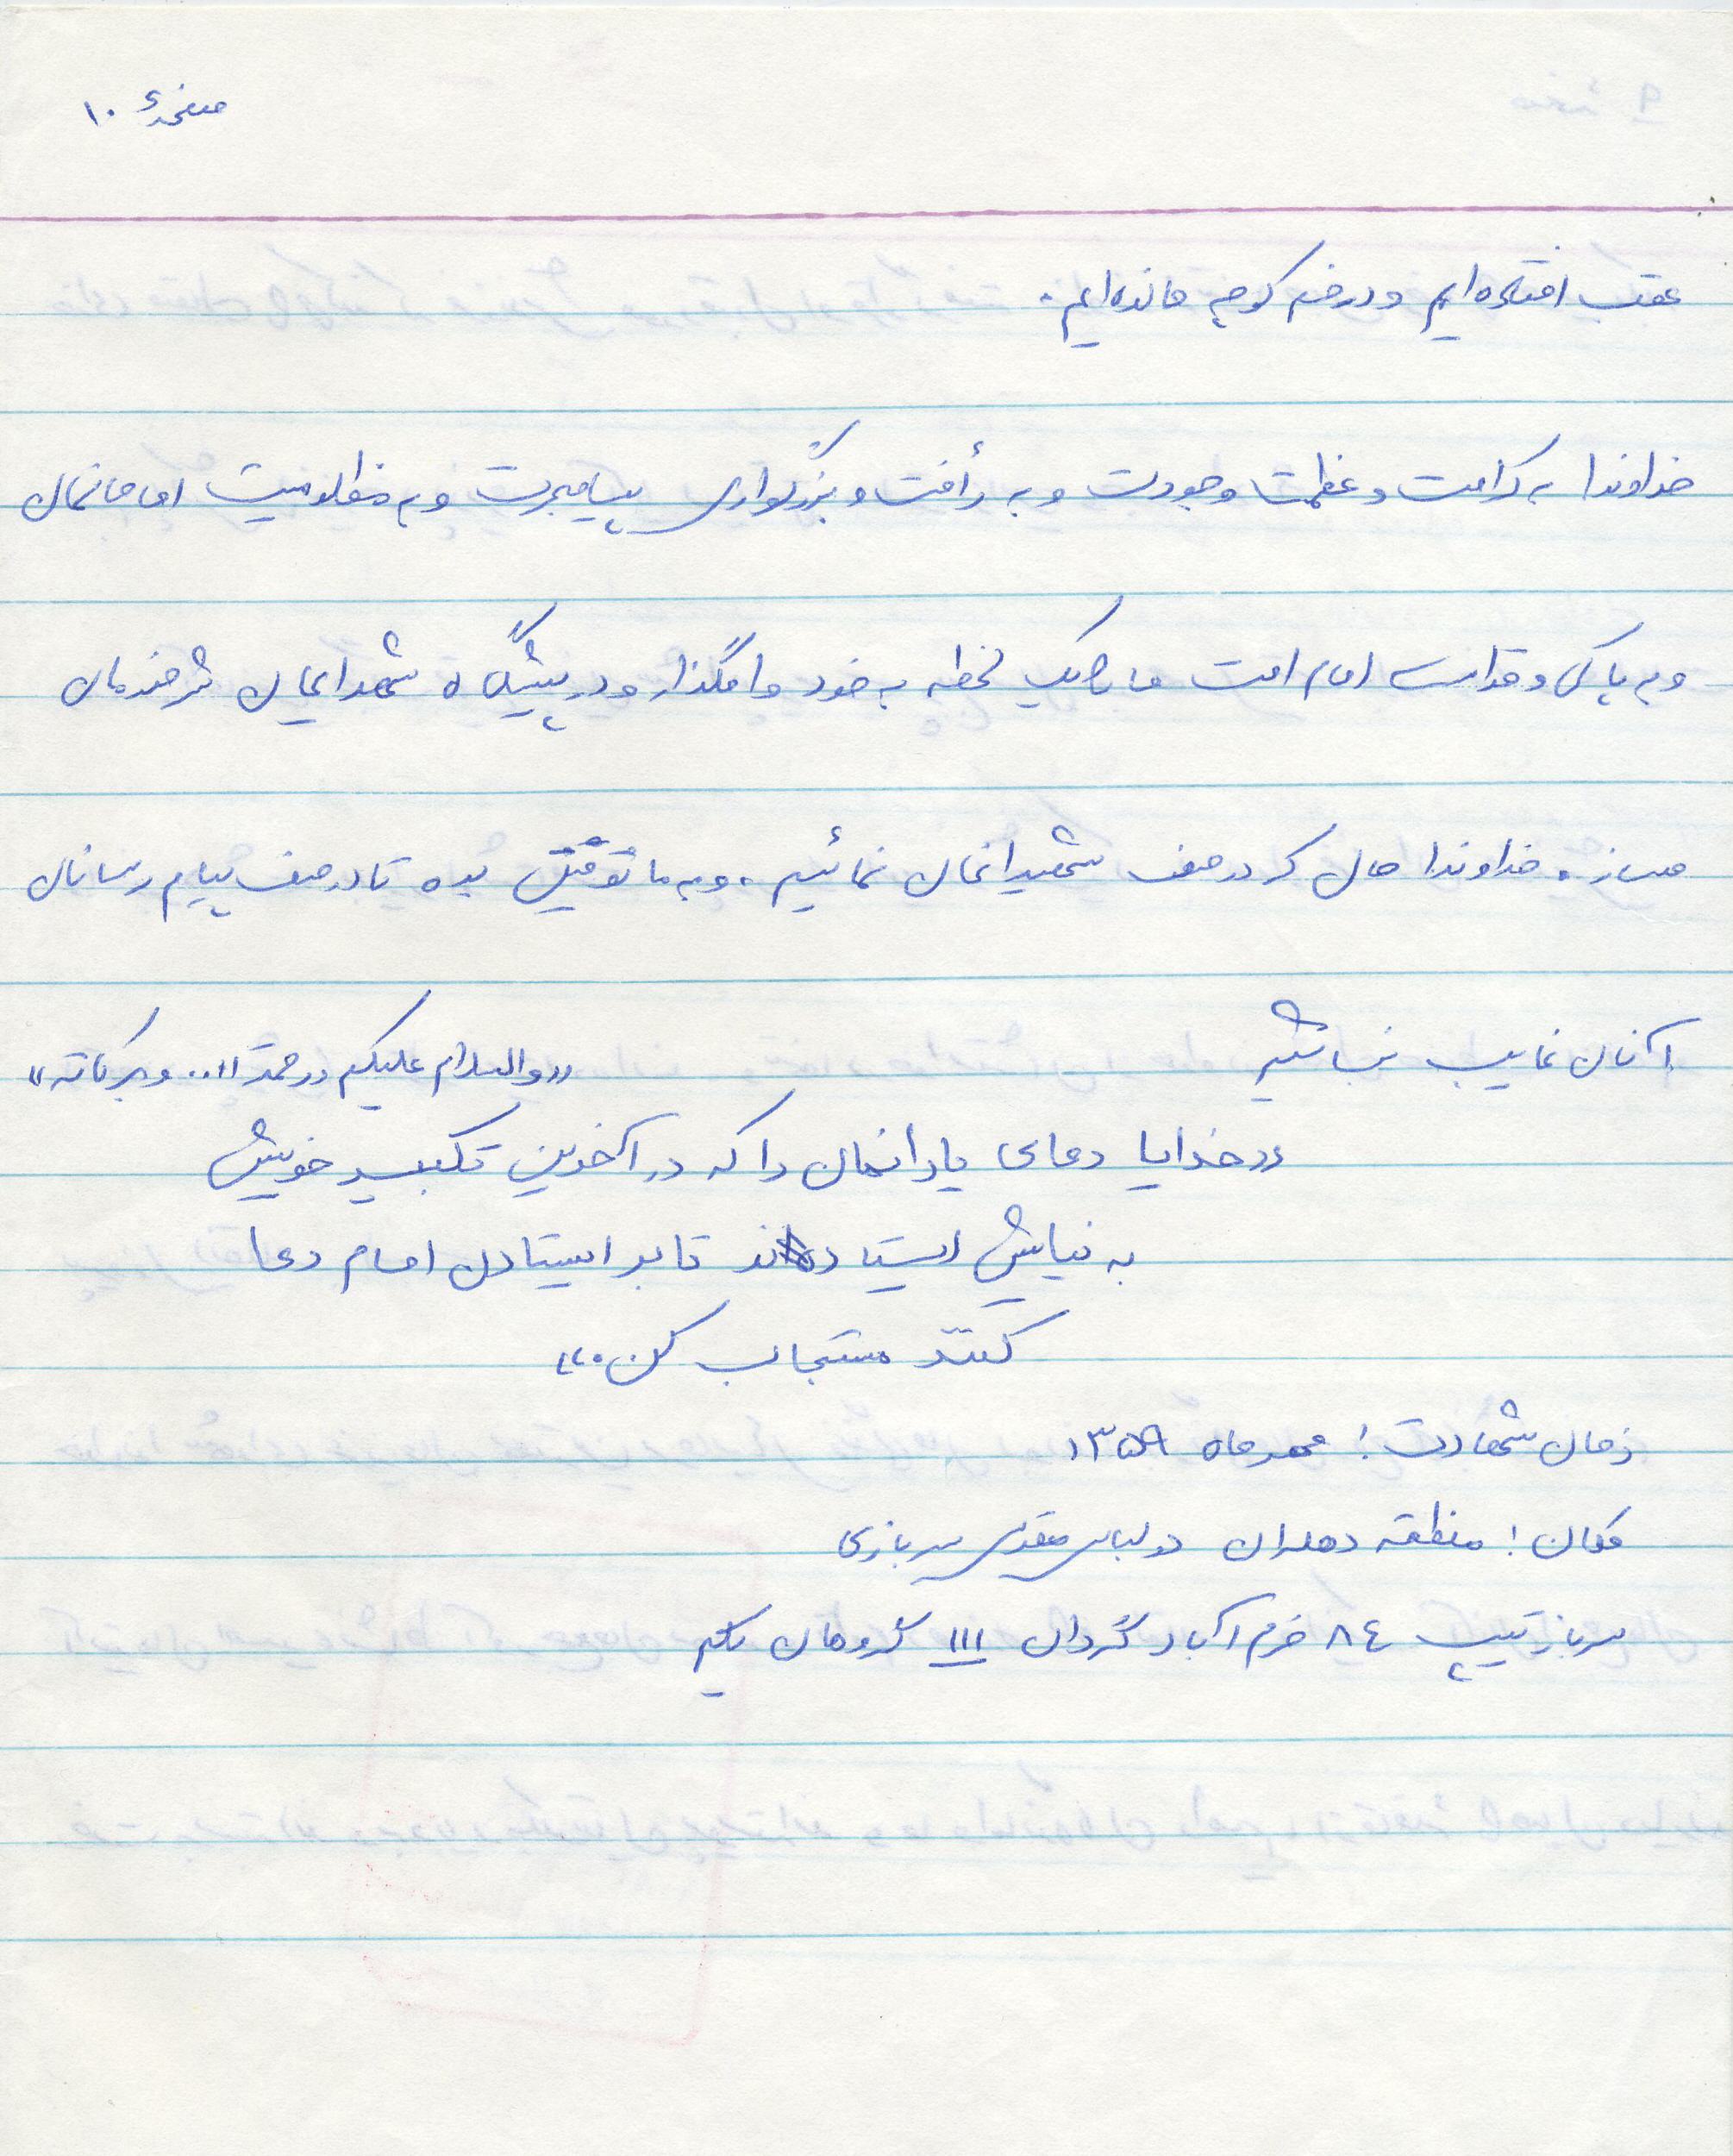 صفحهٔ ۱۰
عقب افتاده‌ایم و در خم کوچه مانده‌ایم.
خداوندا به کرامت و عظمت وجودت و به رأفت و بزرگواری پیامبرت و به مظلومیت امامانمان
و به پاکی و قداست امام امت ما را یک لحظه به خود وامگذار و در پیشگاه شهدایمان شرمنده‌مان
مساز. خداوندا حال که در صف شهیدانمان نمائیم، و به ما توفیق بده تا در صف پیام رسانان
آنان غایب نباشیم
«والسلام علیکم و رحمة ا... و برکاته»
«خدایا دعای یارانمان را که در آخرین تکبیر خویش
به نیایش ایستاده‌اند تا بر ایستادن امام دعا
کنند مستجاب کن.»
زمان شهادت: مهرماه ۱۳۵۹
مکان: منطقه دهلران در لباس مقدس سربازی
سرباز تیپ ۸٤ خرم آباد گردان ۱۱۱ گروهان یکم